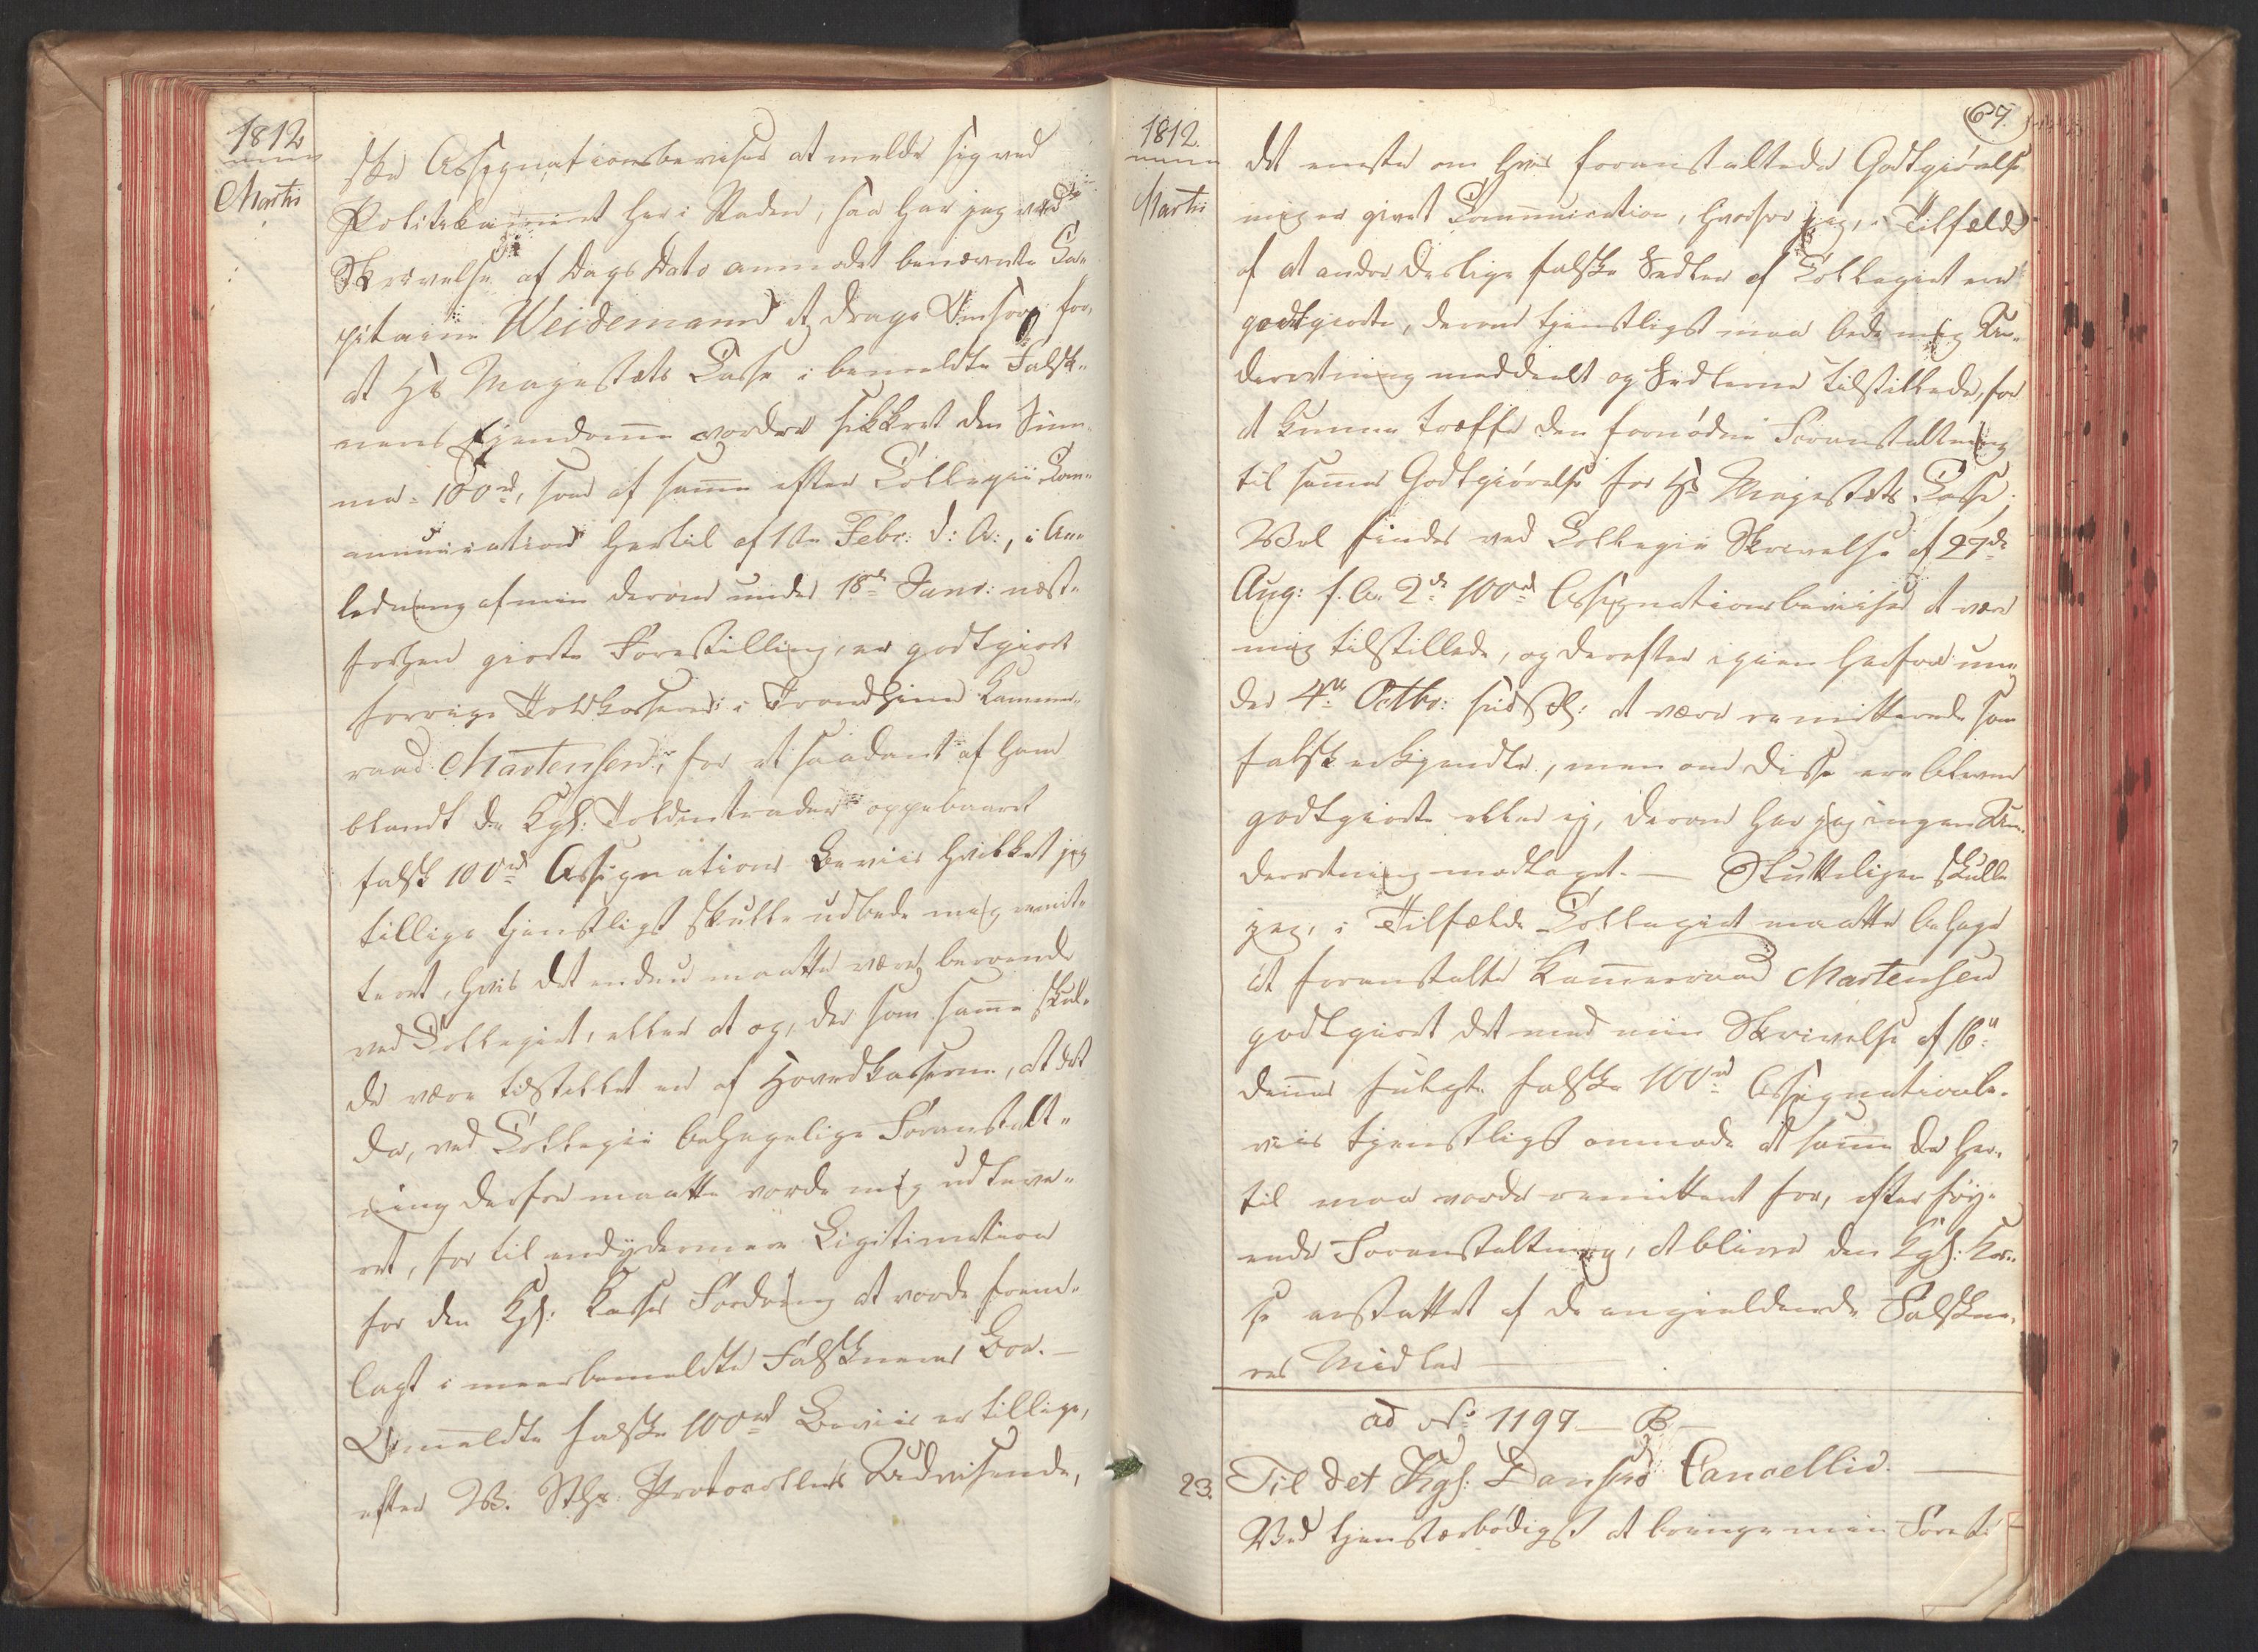 1812
Martii
ske Assignationsbeviser at melde sig ved
Politikammeret her i Staden, saa har jeg ved
Skrivelse af Dags Dato anmodet benævnte Ca„
pitaine Weidemann at drage Omsorg for,
at Hs Majestæts Casse i bemeldte Falsk„
neres Ejendomme vorder sikkret den Sum„
ma 100rd, som af samme efter Collegii Com„
munication hertil af 1ste Febr: d: A:, i An„
ledning af min derom under 18de Janr: næst„
forhen giorte Forestilling, er godtgiort
forrige Toldkasserer i Trondhjem Kammer„
raad Martensen, for et saadant af ham
blandt de Kgl: Toldintrader oppebaaret
falsk 100rd Assignations Beviis hvilket jeg
tillige tjenstligst skulle udbede mig remit„
teret, hvis det endnu maatte være beroende
ved Collegiet, eller at og, dersom samme skul„
de være tilstillet en af Hovedkasserne, at det
da, ved Collegii behagelige Foranstalt„
ning derfra maatte vorde mig udleve„
ret, for til endydermere Ligitimation
for den Kgl: Kasses Fordring at vorde frem„
lagt i meerbemeldte Falskneres Boe. —
Ommeldte falske 100rd Beviis er tillige,
efter W. Sths Protocollens Udvisende,
1812.
Martii
69.
det eneste om hvis foranstaltede Godtgiørelse
mig er givet Communication, hvorfor jeg, i Tilfælde
af at andre deslige falske Sedler af Collegiet ere
godtgiorte, derom tjenstligst maa bede mig Un„
derretning meddeelt og Sedlerne tilstillede, for
at kunne træffe den fornødne Foranstaltning
til sammes Godtgiørelse for Hs Majestæts Casse;
Vel findes ved Collegii Skrivelse af 27de
Aug: f. A. 2de 100rd Assignationsbeviser at være
mig tilstillede, og derefter igien herfra un„
der 4de Octbr: sidstl: at være remitterede som
falsk erkjendte, men om disse ere blevne
godtgiorte eller ej, derom har jeg ingen Un„
derretning modtaget. — Slutteligen skulle
jeg, i Tilfælde Collegiet maatte behage
at foranstalte Kammerraad Martensen
godtgiort det med min Skrivelse af 16de
dennes fulgte falske 100rd Assignationsbe„
viis tjenstligst anmode at samme da her„
til maa vorde remitteret for, efter føy„
ende Foranstaltning, at blive den Kgl: Kas„
se erstattet af de angieldende Falskne„
res Midler —
ad No 1197 — B —
23. Til det Kgl: Danske Cancellie. —
Ved tjenstærbødigst at bringe min Forest: